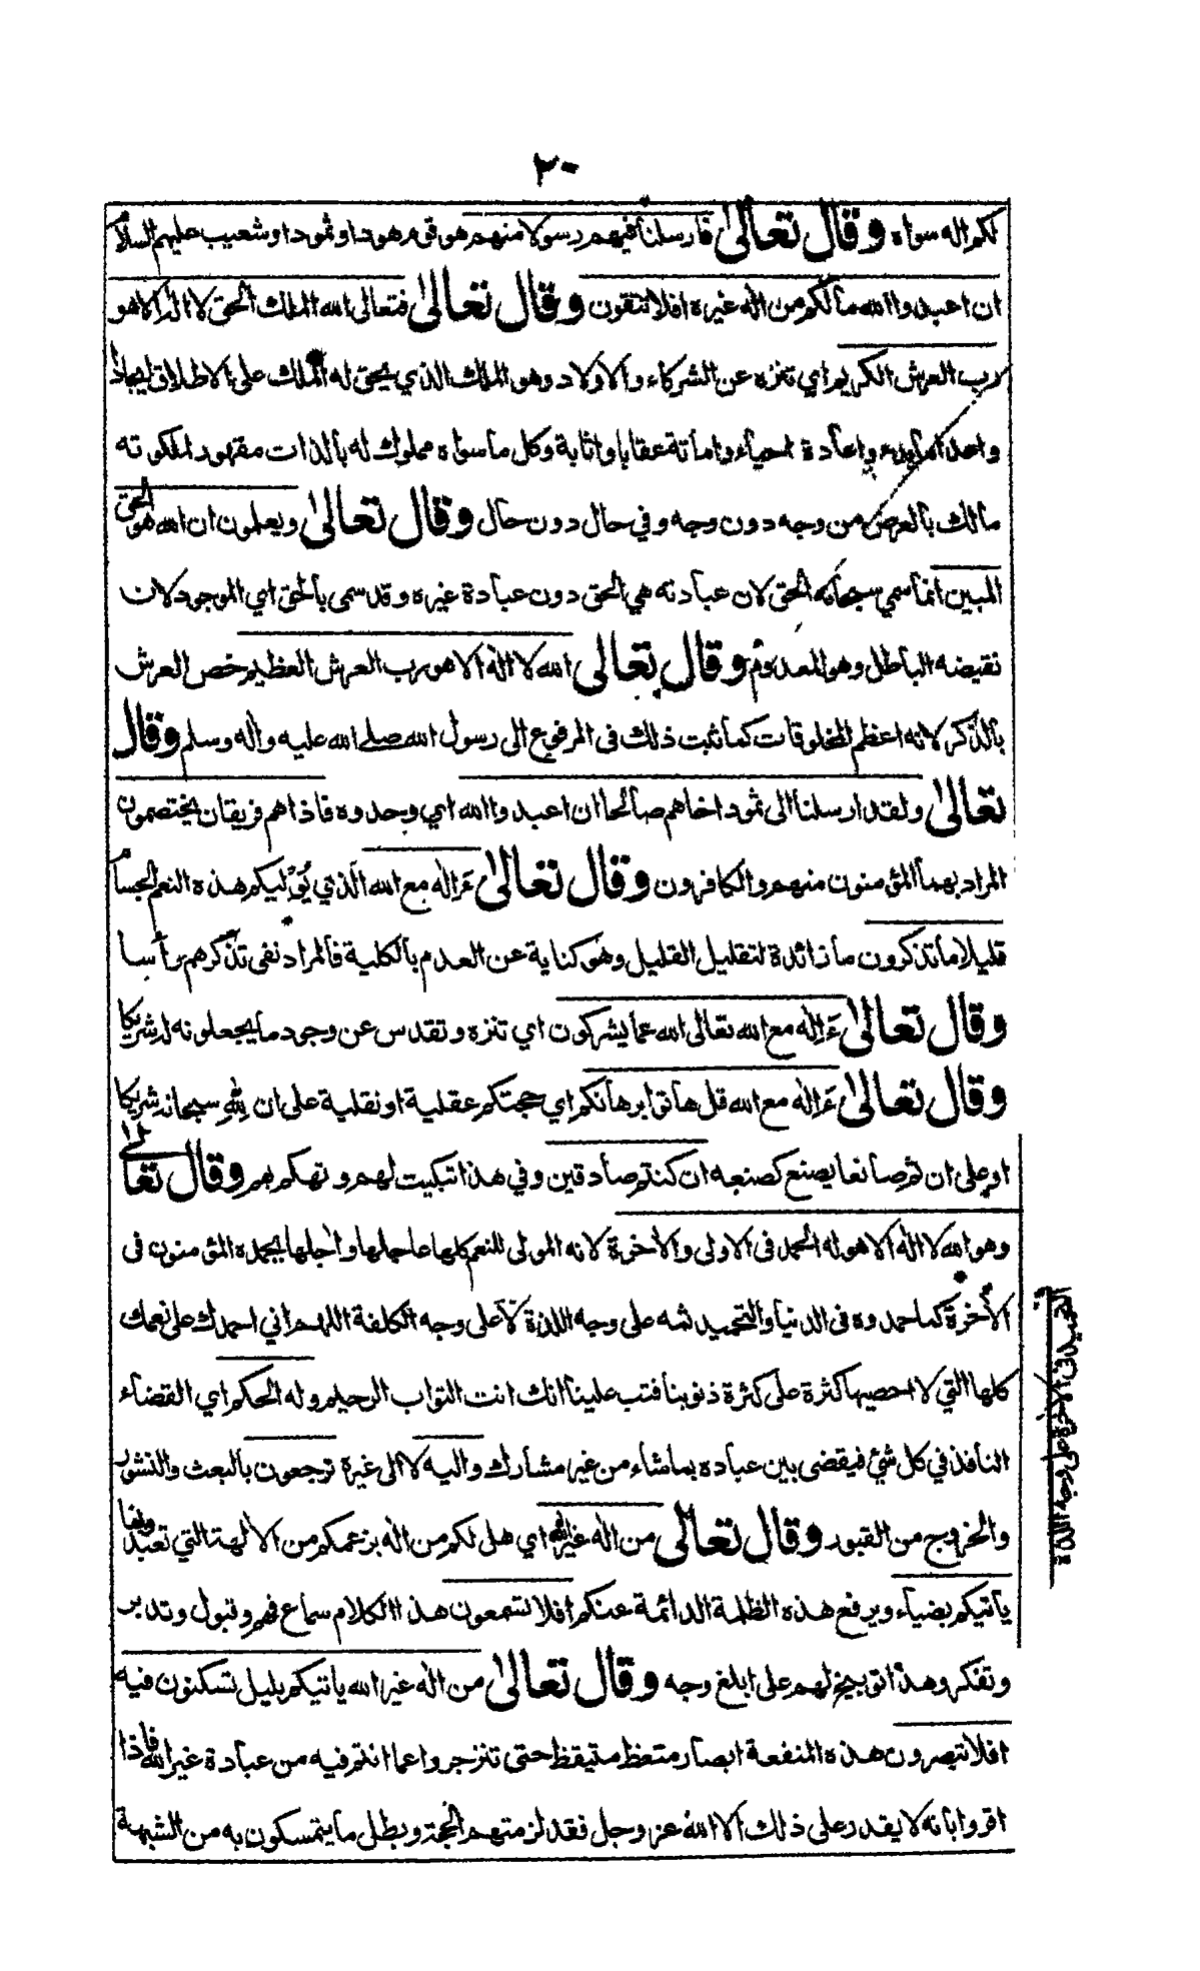 ٢٠
لكم اله سواه وقال تعالى فارسلنا فيهم رسولا منهم هو قوم هود او ثمود او شعيب عليهم السلام
ان اعبدوا الله ما لكم من اله غيره افلا تتقون وقال تعالى فتعالى الله الملك الحق لا اله الا هو
رب العرش الكريم اي تنزه عن الشركاء والاولاد وهو الملك الذي يحق له الملك على الاطلاق ايجادا
واعداما وبدء واعادة احياء واماتة عقابا واثابة وكل ما سواه مملوك له بالذات مقهور لملكوته
مالك بالعرض من وجه دون وجه وفي حال دون حال وقال تعالى ويعلمون ان الله هو الحق
المبين انما سمي سبحانه الحق لان عبادته هي الحق دون عبادة غيره وقد سمى بالحق اي الموجود لان
نقيضه الباطل وهو المعدوم وقال تعالى الله لا اله الا هو رب العرش العظيم خص العرش
بالذكر لانه اعظم المخلوقات كما ثبت ذلك فى المرفوع الى رسول الله صلى الله عليه واله وسلم وقال
تعالى ولقد ارسلنا الى ثمود اخاهم صالحا ان اعبدوا الله اي وحدوه فاذا هم فريقان يختصمون
المراد بهما المؤمنون منهم والكافرون وقال تعالى ءَاِله مع الله الذي يُوْليكم هذه النعم الجسام
قليلا ما تذكرون ما زائدة لتقليل القليل وهو كناية عن العدم بالكلية فالمراد نفى تذكرهم رأسا
وقال تعالى ءَاِله مع الله تعالى الله عما يشركون اي تنزه وتقدس عن وجود ما يجعلونه له شريكا
وقال تعالى ءَاِله مع الله قل هاتوا برهانكم اي حجتكم عقلية او نقلية على ان لِلّٰهِ سبحانه شريكا
او على ان ثم صانعا يصنع كصنعه ان كنتم صادقين وفي هذا تبكيت لهم وتهكم بهم وقال تعالى
وهو الله لا اله الا هو له الحمد فى الاولى والاخرة لانه المولى للنعم كلها عاجلها واجلها يحمده المؤمنون فى
الاخرة كما حمدوه فى الدنيا والتحميد ثمه على وجه اللذة لا على وجه الكلفة اللهم اني احمدك على نعمك
كلها التي لا احصيها كثرة على كثرة ذنوبنا فتب علينا انك انت التواب الرحيم وله الحكم اي القضاء
النافذ في كل شئ فيقضى بين عباده بما شاء من غير مشارك واليه لا الى غيرة ترجعون بالبعث والنشور
والخروج من القبور وقال تعالى من اله غير الله اي هل لكم من اله بزعمكم من الالهة التي تعبدونها
يأتيكم بضياء ويرفع هذه الظلمة الدائمة عنكم افلا تسمعون هذا الكلام سماع فهم وقبول وتدبر
وتفكر وهذا توبيخ لهم على ابلغ وجه وقال تعالى من اله غير الله ياتيكم بليل تسكنون فيه
افلا تبصرون هذه المنفعة ابصار متعظ متيقظ حتى تنزجروا عما انتم فيه من عبادة غير الله فاذا
اقروا بانه لا يقدر على ذلك الا الله عز وجل فقد لزمتهم الحجة وبطل ما يتمسكون به من الشبهة